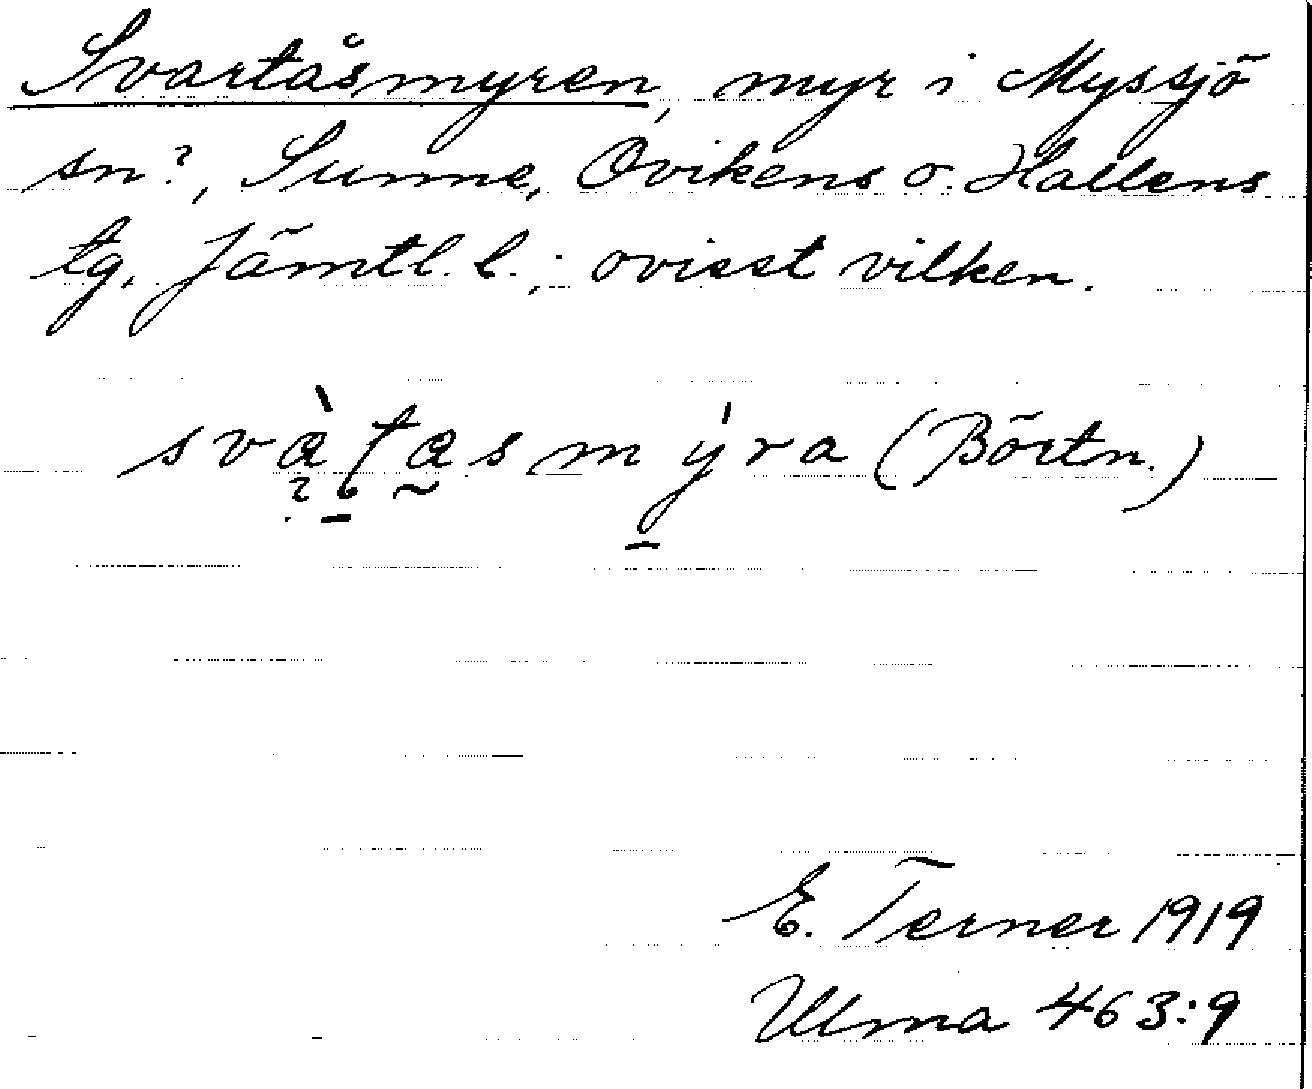 Svartåsmyren, myr i Myssjö
sn?, Sunne, Ovikens o. Hallens
tg, Jämtl. l.; ovisst vilken.
svàtasmýra (Börtn.)
E. Terner 1919
Ulma 463:9